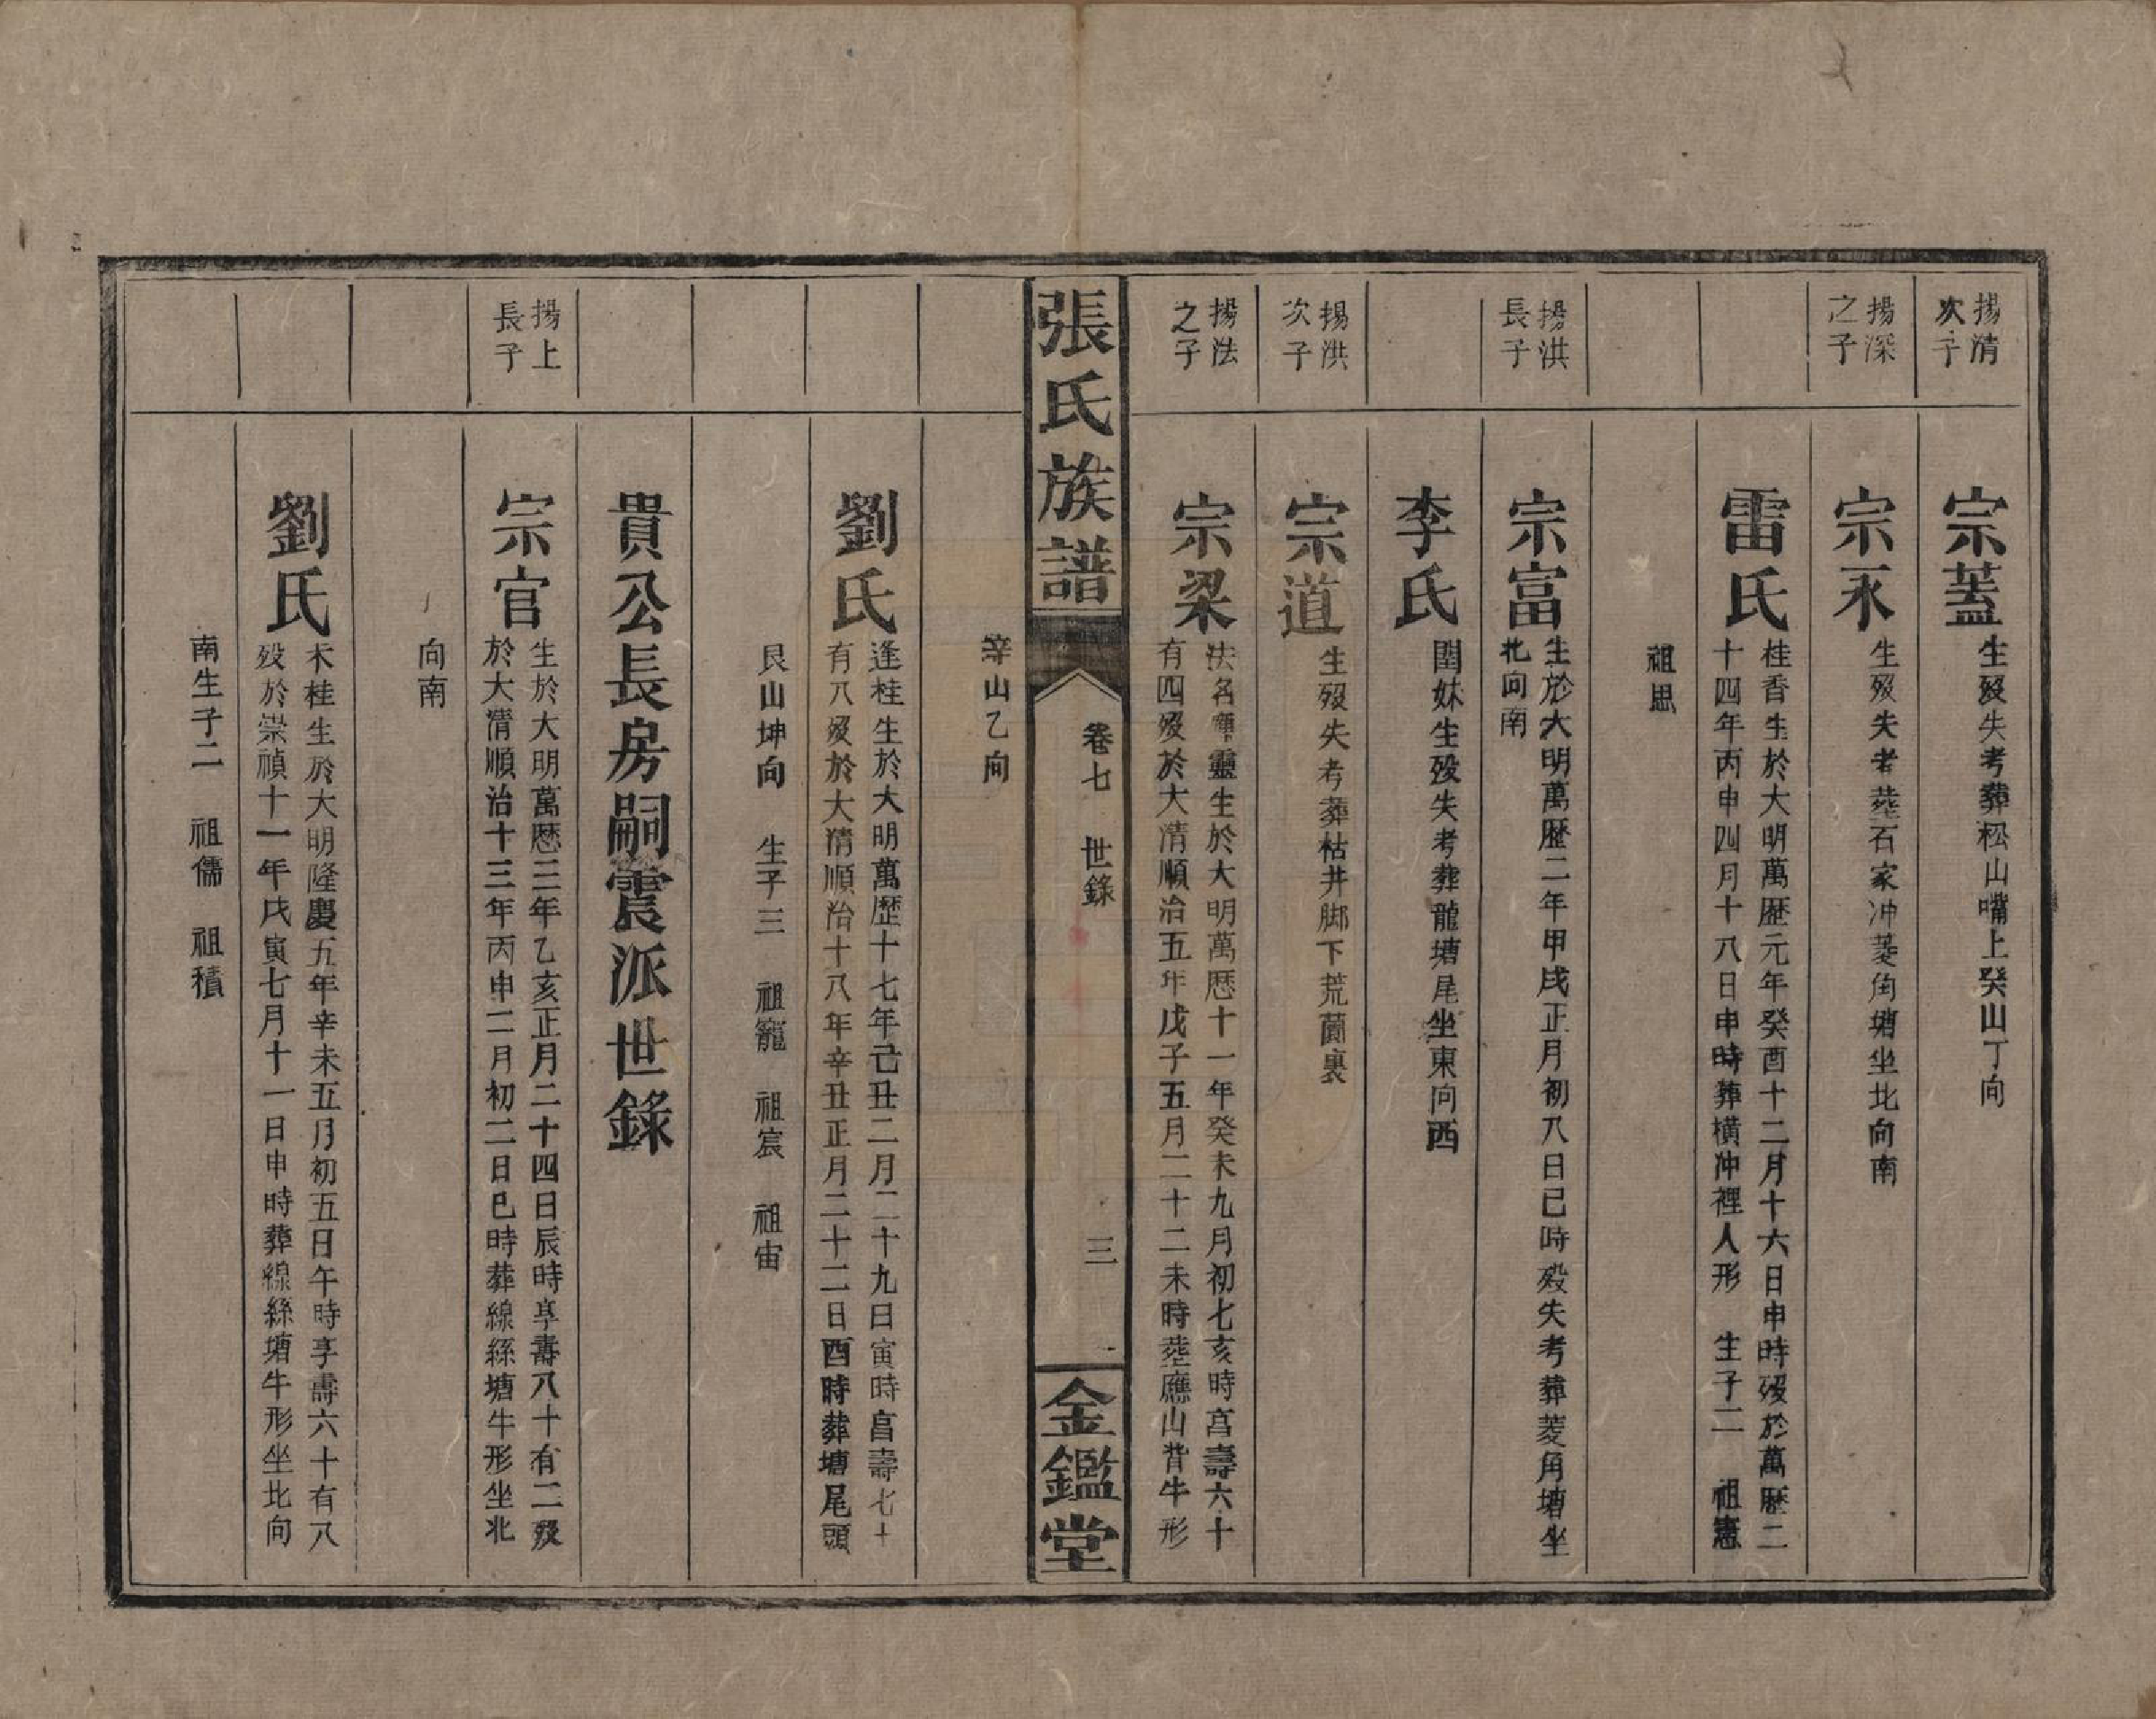 揚清
次子
宗蓋
生歿失考葬松山嘴上癸山丁向
揚深
之子
宗永
生歿失考葬石家冲菱角塘坐北向南
雷氏
桂香生於大明萬歷元年癸酉十二月十六日申時歿於萬歷二
十四年丙申四月十八日申時葬橫冲裡人形 生子二 祖憲
祖思
揚洪
長子
宗富
生於大明萬歷二年甲戌正月初八日巳時歿失考葬菱角塘坐
北向南
李氏
閏妹生歿失考葬龍塘尾坐東向西
揚洪
次子
宗道
生歿失考葬枯井脚下荒薗裏
揚法
之子
宗梁
法名靈生於大明萬歷十一年癸未九月初七亥時亯壽六十
有四歿於大清順治五年戊子五月二十二未時葬應山背牛形
張氏族譜
卷七 世錄
三
金鑑堂
辛山乙向
劉氏
逢桂生於大明萬歷十七年己丑二月二十九日寅時亯壽七十
有八歿於大清順治十八年辛丑正月二十二日酉時葬塘尾頭
艮山坤向 生子三 祖寵 祖宸 祖宙
貴公長房嗣震派世錄
揚上
長子
宗官
生於大明萬歷三年乙亥正月二十四日辰時享壽八十有二歿
於大清順治十三年丙申二月初二日巳時葬線絲塘牛形坐北
向南
劉氏
木桂生於大明隆慶五年辛未五月初五日午時享壽六十有八
歿於崇禎十一年戊寅七月十一日申時葬線絲塘牛形坐北向
南生子二 祖儒 祖積